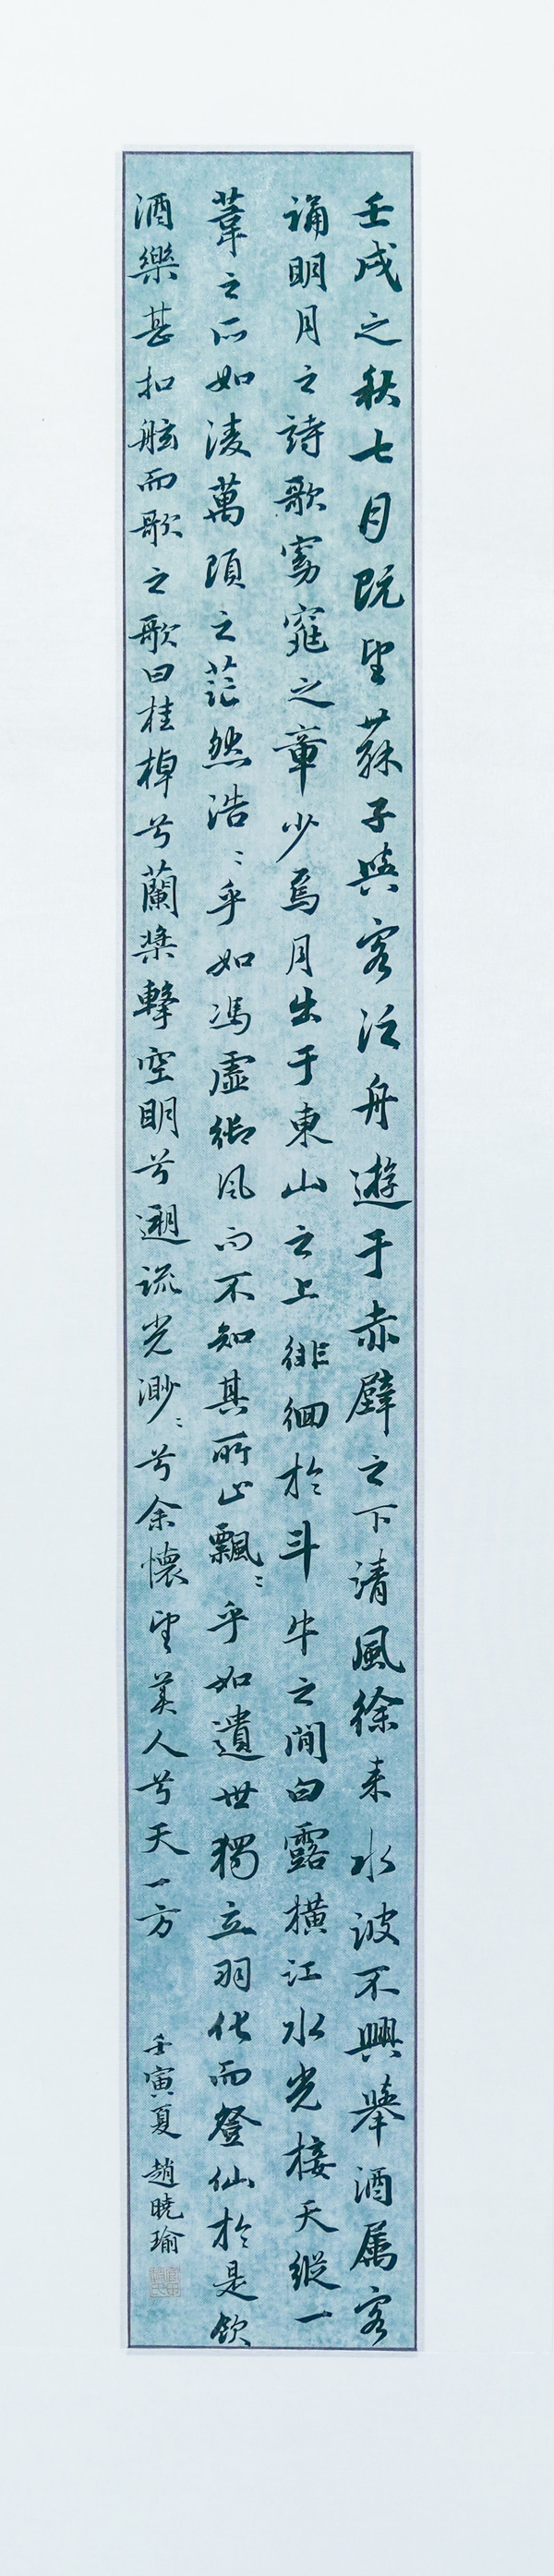 壬戌之秋七月既望蘇子與客泛舟遊于赤壁之下清風徐来水波不興舉酒属客
誦明月之詩歌窈窕之章少焉月出于東山之上徘徊於斗牛之間白露橫江水光接天縱一
葦之所如淩萬頃之茫然浩〻乎如馮虛御风而不知其所止飄〻乎如遺世獨立羽化而登仙於是飲
酒樂甚扣舷而歌之歌曰桂棹兮蘭槳擊空明兮遡流光渺〻兮余懷望美人兮天一方
壬寅夏 趙曉瑜